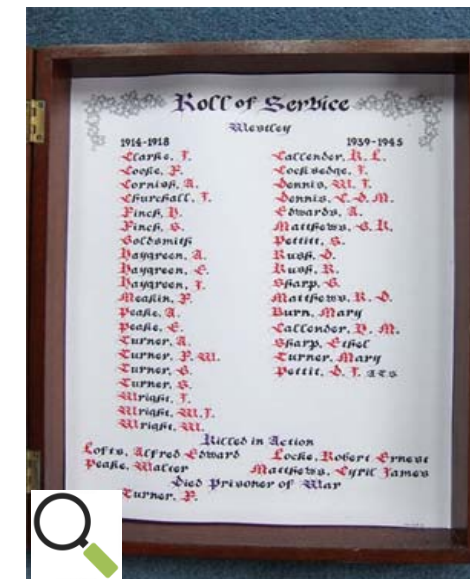 Roll of Service
Westley
1914-1918
Clarke, J.
Cooke, P.
Cornish, A.
Churchall, J.
Finch, H.
Finch, S.
Goldsmith
Haygreen, A.
Haygreen, E.
Haygreen, J.
Meakin, P.
Peake, A.
Peake, E.
Turner, A.
Turner, P. W.
Turner, G.
Turner, S.
Wright, J.
Wright, W. J.
Wright, W.
1939-1945
Callender, R. L.
Cocksedge, J.
Dennis, W. J.
Dennis, C. D. M.
Edwards, A.
Matthews, G. R.
Pettitt, S.
Rush, D.
Rush, R.
Sharp, G.
Matthews, R. D.
Burn, Mary
Callender, H. M.
Sharp, Ethel
Turner, Mary
Pettit, D. J. ATS
Killed in Action
Lofts, Alfred Edward Locke, Robert Ernest
Peake, Walter Matthews, Cyril James
Died Prisoner of War
Turner, P.